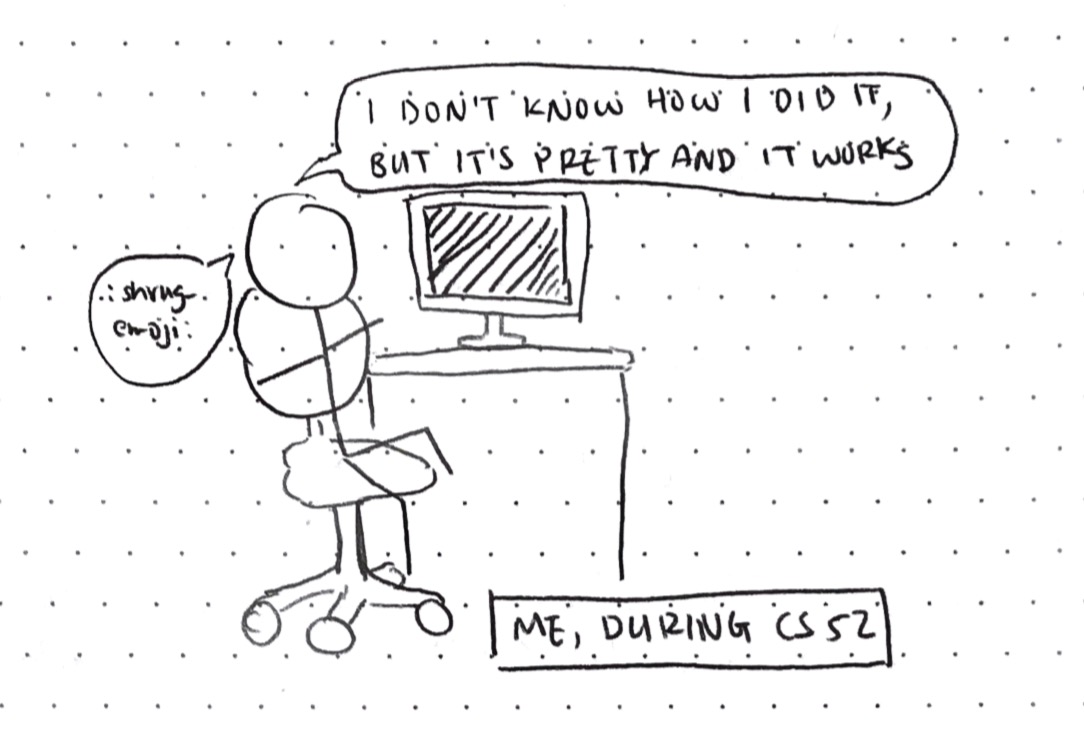 I DON'T KNOW HOW I DID IT,
BUT IT'S PRETTY AND IT WORKS
:shrug-
emoji:
ME, DURING CS 52